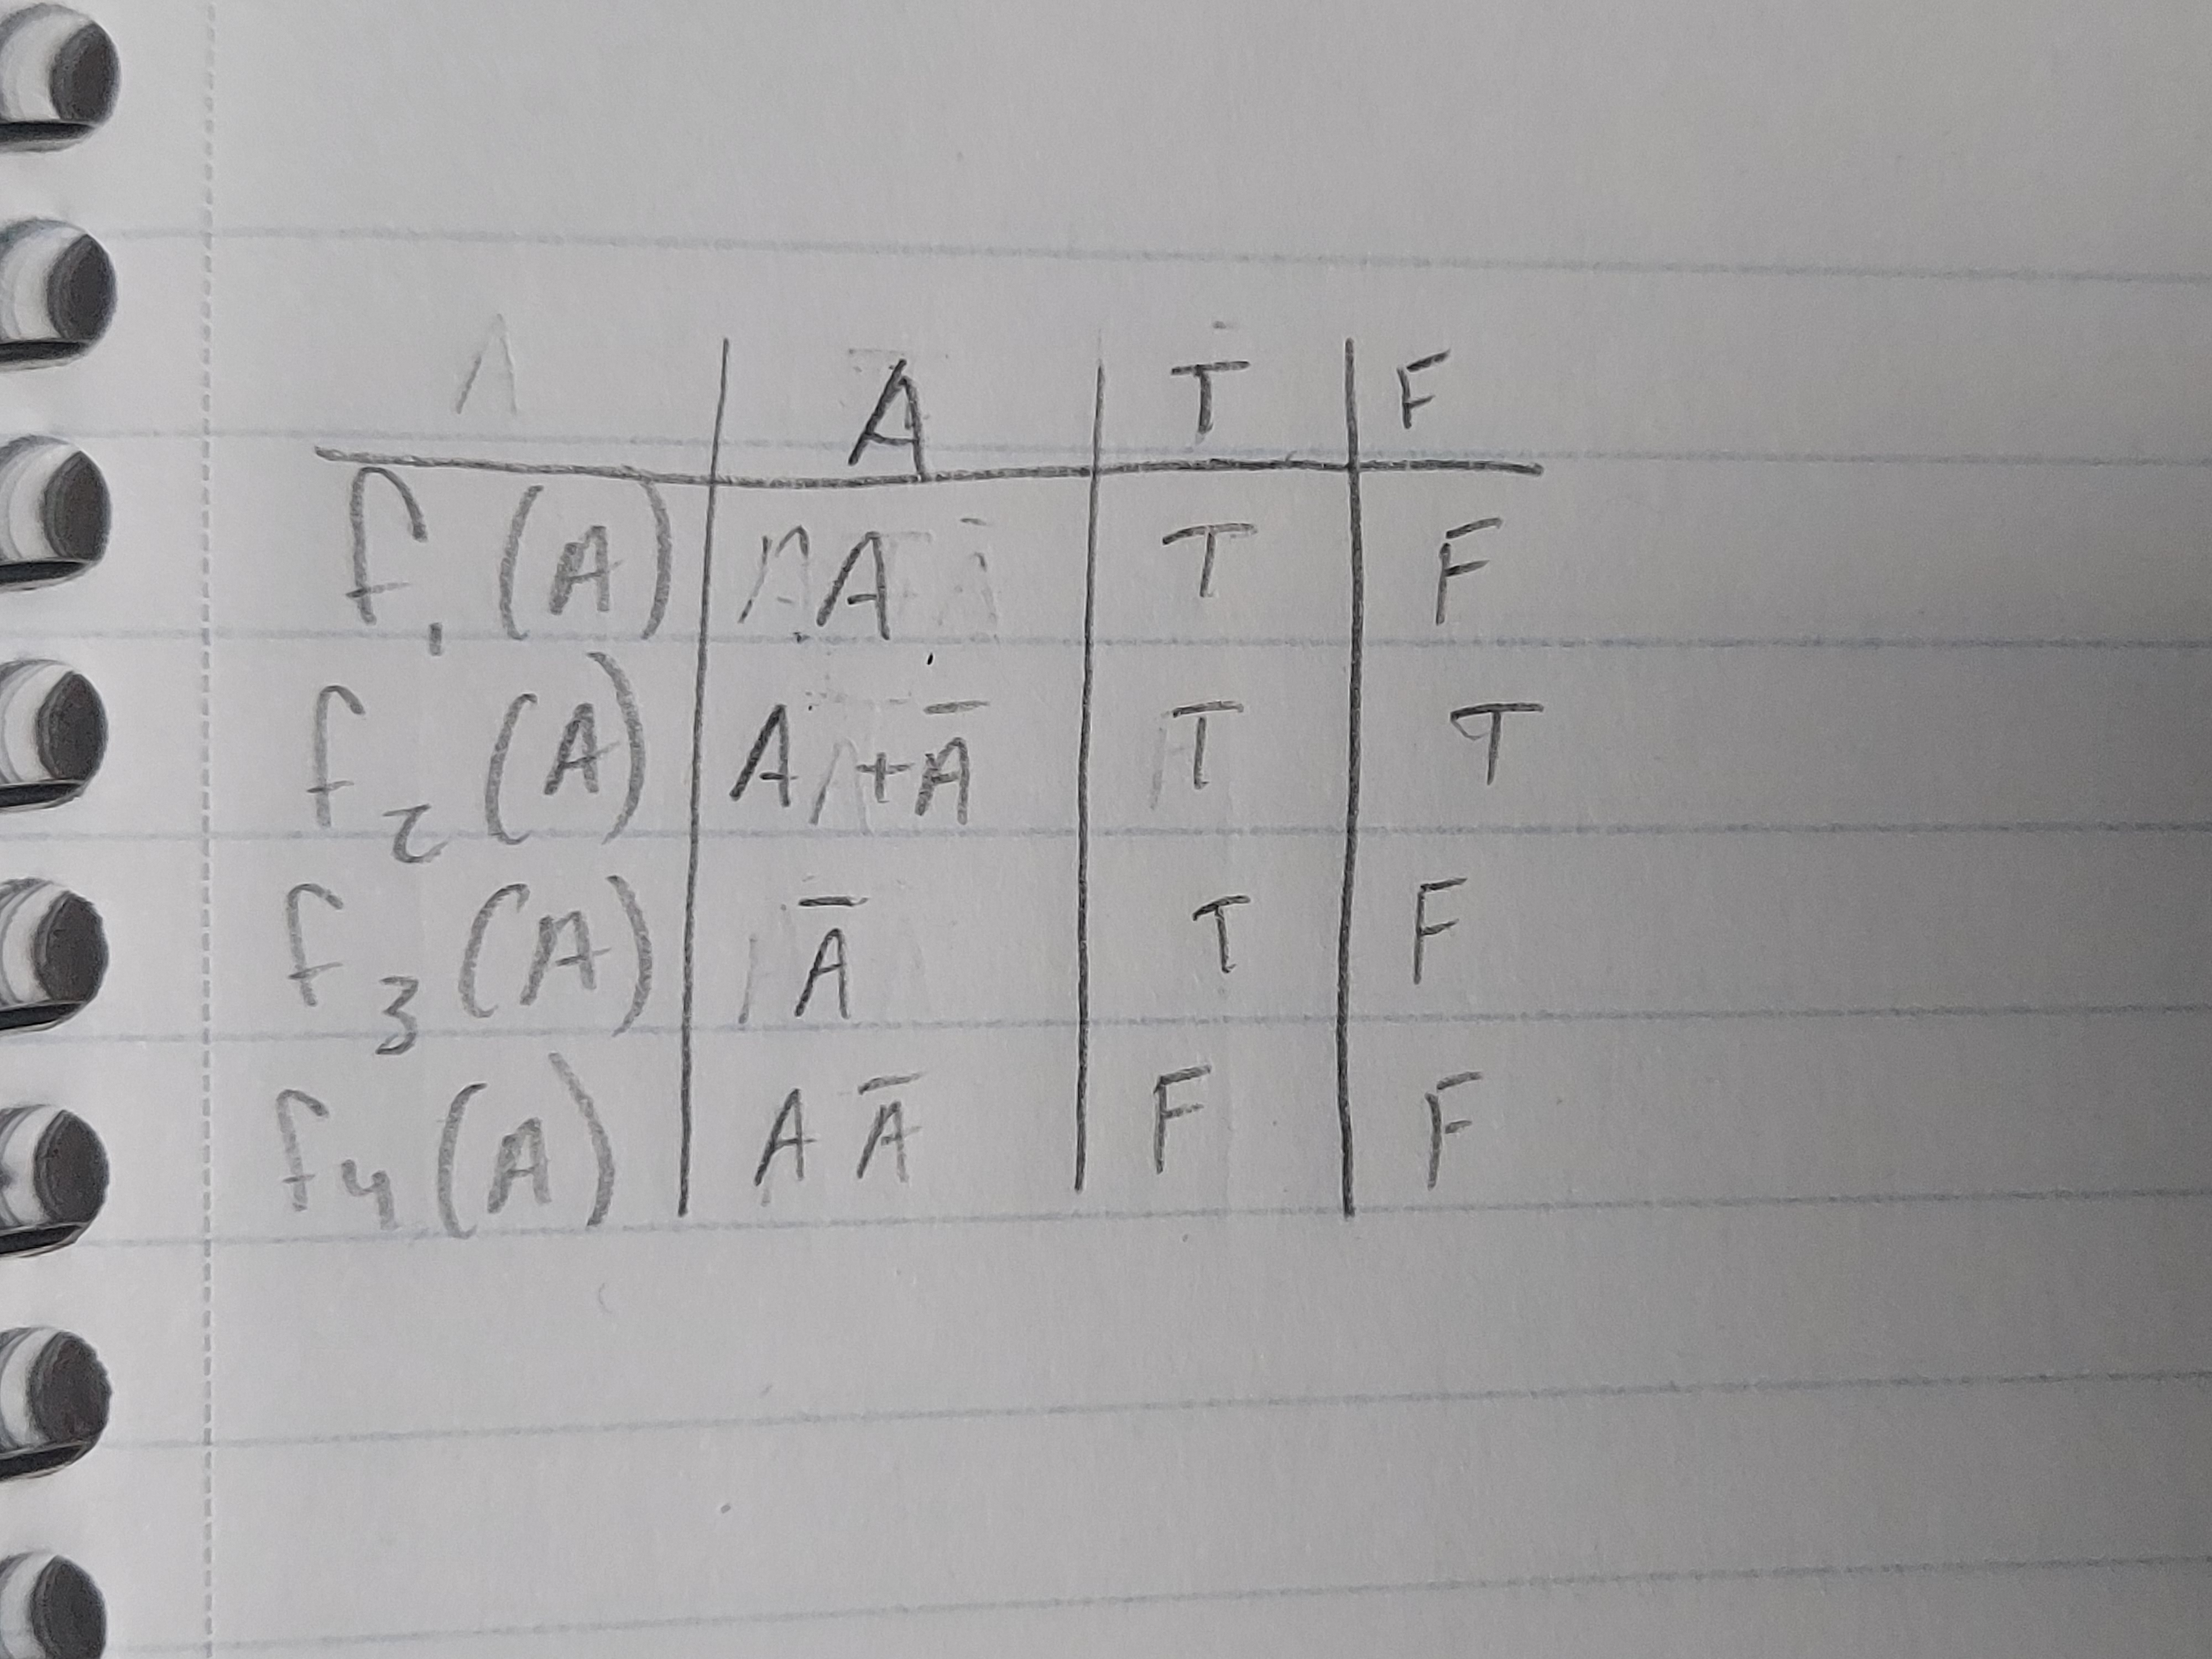 A T F
f₁(A) A T F
f₂(A) A + A̅ T T
f₃(A) A̅ T F
f₄(A) A A̅ F F